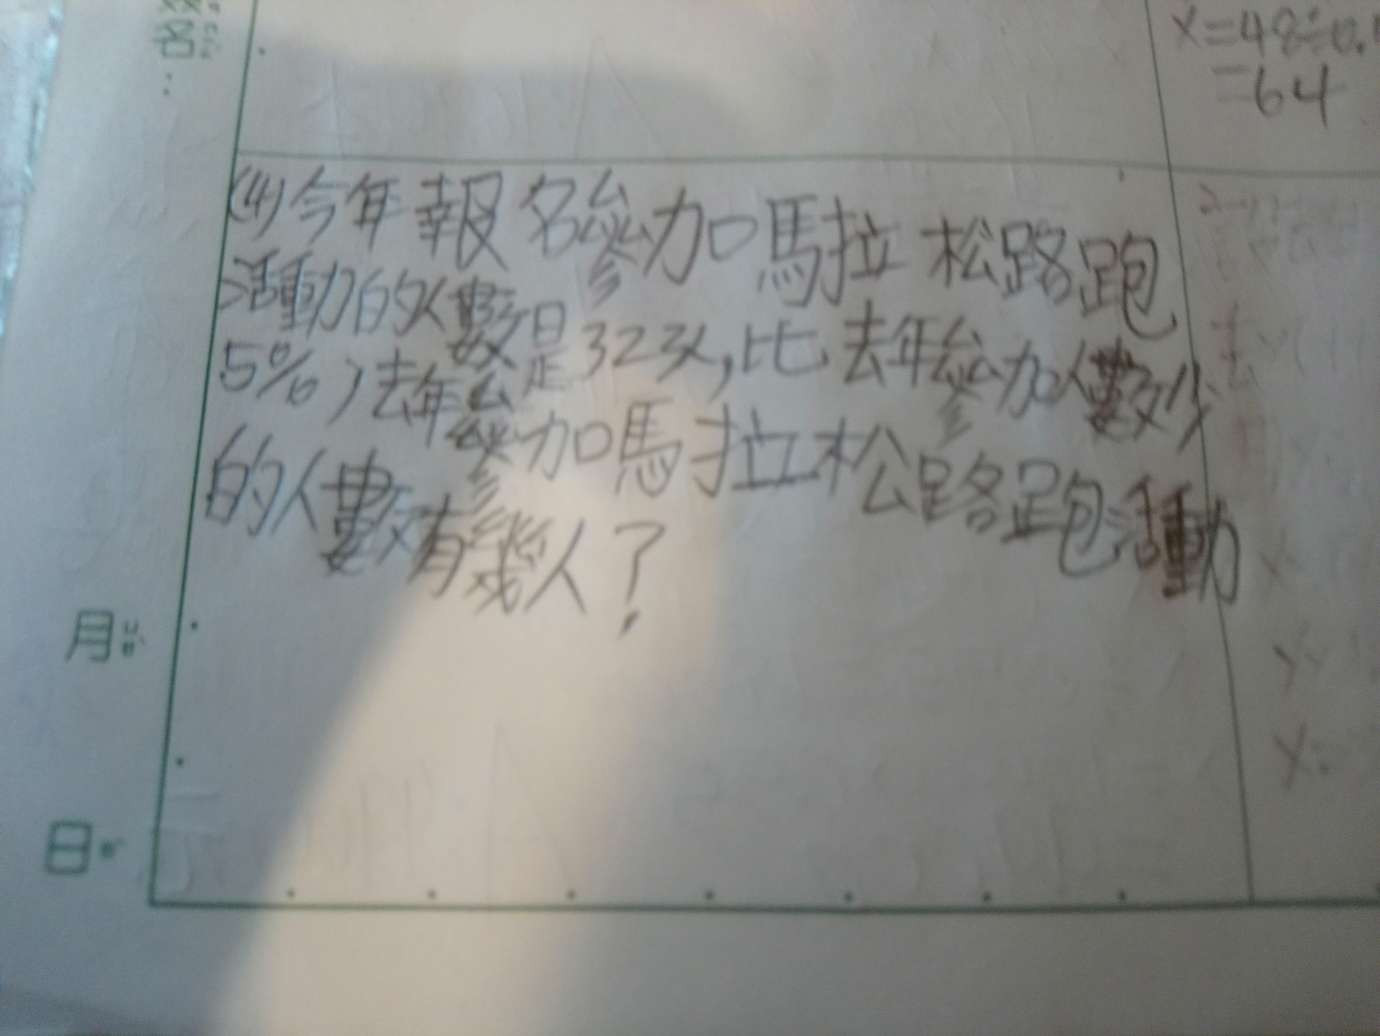 X=48÷0.
=64
(4)今年報名參加馬拉松路跑
活動的人數是323人,比去年參加人數少
5%,去年參加馬拉松路跑活動
的人數有幾人?
月
日